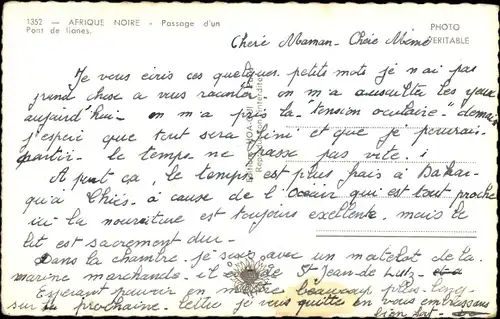 1352 — AFRIQUE NOIRE - Passage d'un
Pont de lianes.
PHOTO
VERITABLE
Cheré Maman - Chere Mémé
Je vous ecris ces quelques petits mots je n'ai pas
grand chose a vous raconter - on m'a ausculter les yeux
aujourd'hui - on m'a pris la "tension oculaire" demain
j'espere que tout sera fini et que je pourrai
partir. le temps ne passe pas vite. !
A part ça, le temps est plus frais à Dakar-
qu'a Thiès - à cause de l'océan qui est tout proche
ici la nourriture est toujours excellente, mais le
lit est sacrement dur -
Dans la chambre. je suis avec un matelot de la
marine marchande. il est de St Jean de Luz -
Esperant pouvoir en mettre beaucoup plus long
sur la prochaine. lettre je vous quitte en vous embrassant
bien fort -